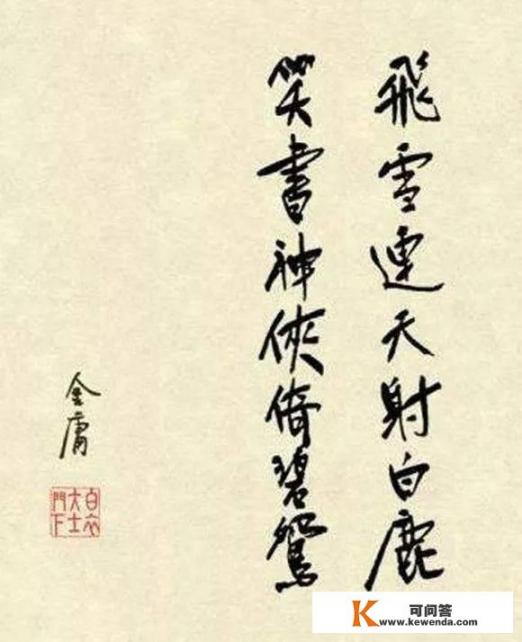 飛雪連天射白鹿
笑書神俠倚碧鴛
金庸
白衣
大士
門下
K 可问答
www.kewenda.com